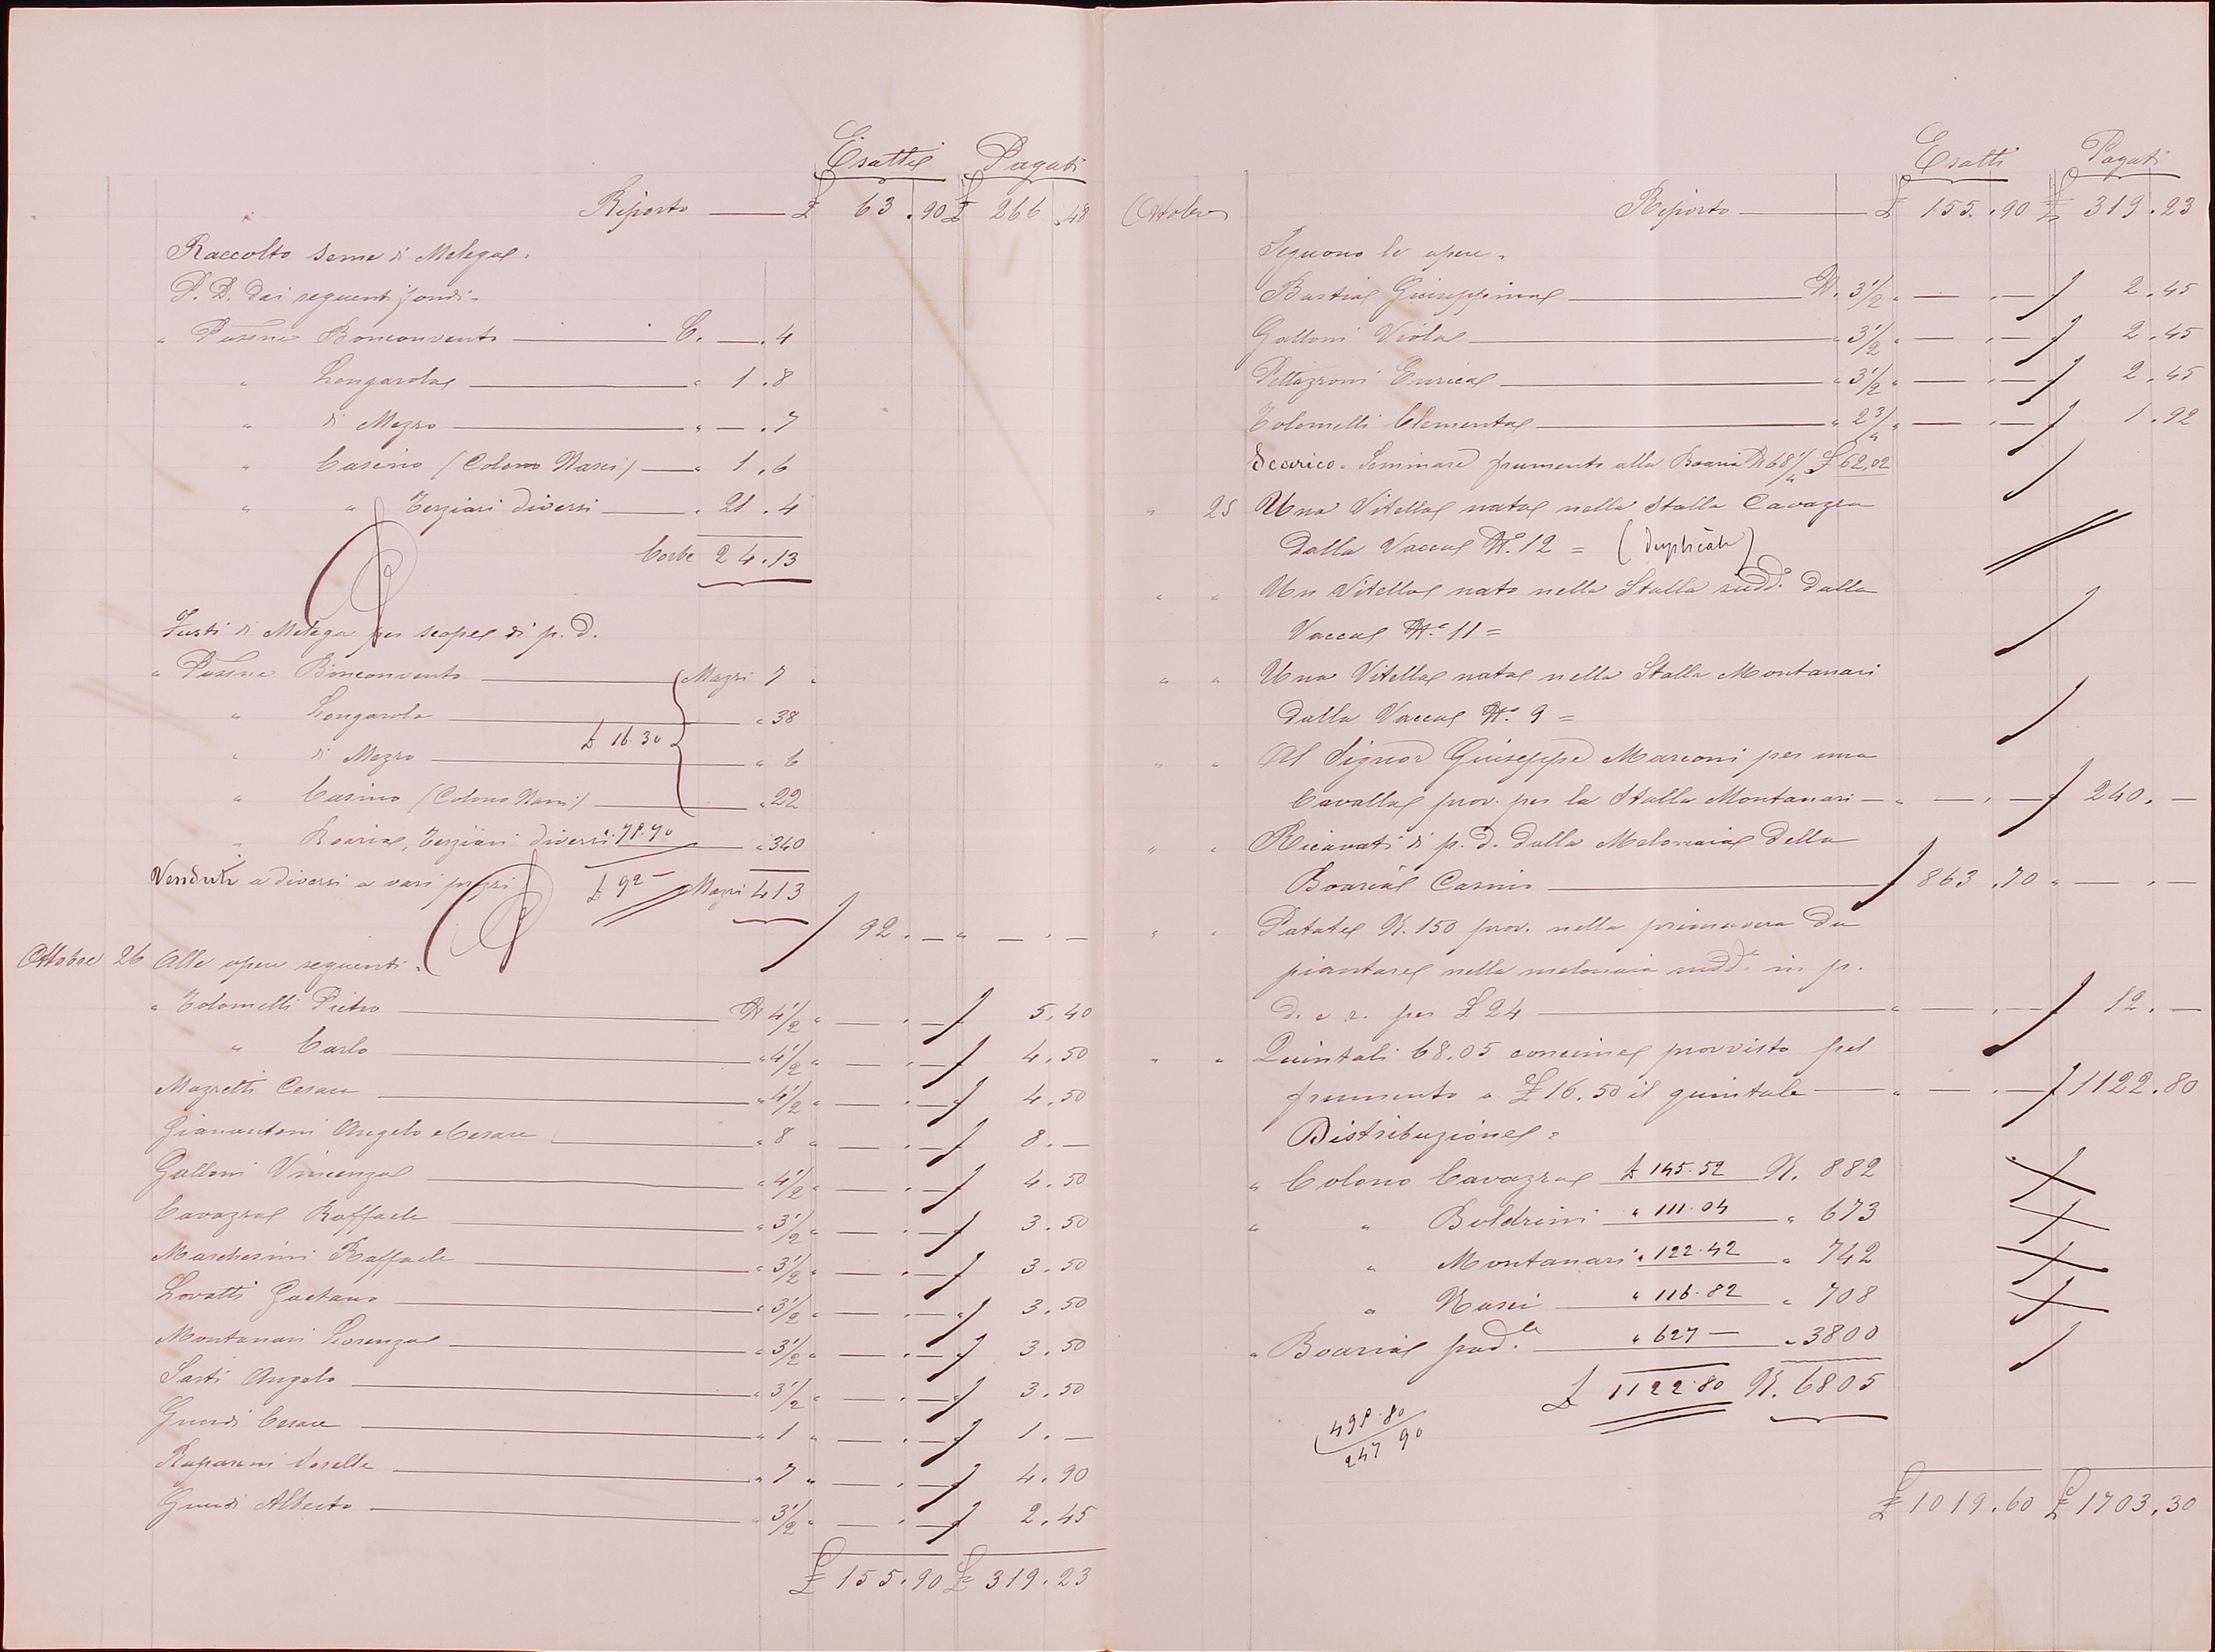 Esatti Pagati
Riporto £ 63.90 £ 266.48
Raccolto seme di Melega.
P. D. dai seguenti fondi.
" Possne Bonconvento C. — . 4
" Longarola " 1 . 8
" di Mezzo " — . 7
" Casino (Colono Nasci) " 1 . 6
" " Terziari diversi " 21 . 4
Corbe 24.13
Fusti di Melega per scope di p. d.
" Possne Bonconvento Mazzi 7 "
" Longarola " 38
£ 16.30
" di Mezzo " 6
" Casino (Colono Nasci) " 22
" Boaria, Terziari diversi " 340
Venduti a diversi a vari prezzi £ 92 — Mazzi 413
92. — " — . —
Ottobre 26 Alle opere seguenti.
" Tolomelli Pietro N 4 1/2 " — . — 5.40
" Carlo " 4 1/2 " — . — 4.50
Mazzetti Cesare " 4 1/2 " — . — 4.50
Gianantoni Angelo e Cesare " 8 " — . — 8. —
Galloni Vincenza " 4 1/2 " — . — 4.50
Cavazza Raffaele " 3 1/2 " — . — 3.50
Marchesini Raffaele " 3 1/2 " — . — 3.50
Lovatti Gaetano " 3 1/2 " — . — 3.50
Montanari Lorenza " 3 1/2 " — . — 3.50
Sarti Angelo " 3 1/2 " — . — 3.50
Guardi Cesare " 1 " — . — 1. —
Raparini " 7 " — . — 4.90
Guardi Alberto " 3 1/2 " — . — 2.45
£ 155.90 £ 319.23
Esatti Pagati
Ottobre Riporto £ 155.90 £ 319.23
Seguono le opere.
Bastia Giuseppina N. 3 1/2 " — . — 2.45
Galloni Viola " 3 1/2 " — . — 2.45
Pettazzoni Enrica " 3 1/2 " — . — 2.45
Tolomelli Clementa " 2 3/4 " — . — 1.92
Scarico. Seminare frumento alla Boaria N 68 1/4 £ 62.02
" 25 Una Vitella nata nella Stalla Cavazza
dalla Vacca N. 12 = (duplicato)
" " Un Vitello nato nella Stalla sudd. dalla
Vacca N. 11 =
" " Una Vitella nata nella Stalla Montanari
dalla Vacca N. 9 =
" " Al Signor Giuseppe Marconi per una
Cavalla prov. per la Stalla Montanari — " — . — 240. —
" " Ricavati di p. d. dalla Melonaia della
Boaria Casino 863.70 " — . —
" " Patate K. 150 prov. nella primavera da
piantare nella melonaia sudd. in p.
d. e r. per £ 24 " — . — 12. —
" " Quintali 68.05 concime provvisto pel
frumento a £ 16.50 il quintale " — . — 1122.80
Distribuzione =
" Colono Cavazza £ 145.52 K. 882
" " Boldrini " 111.04 " 673
" Montanari " 122.42 " 742
" Nasci " 116.82 " 708
" Boaria pad.le " 627 — " 3800
£ 1122.80 K. 6805
247 90
£ 1019.60 £ 1703.30